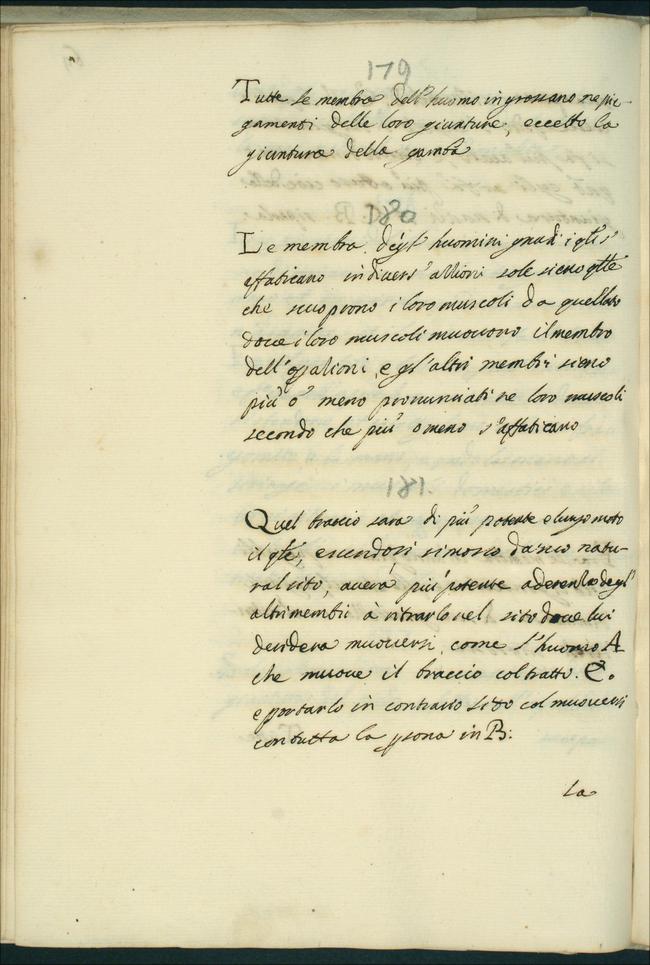 179
Tutte le membra dell'huomo ingrossano ne pie-
gamenti delle loro giunture, eccetto la
giuntura della gamba
180
Le membra degl'huomini gnudi i qli s'
affaticano in divers'attioni sole sieno qlle
che scuoprono i loro muscoli da quel lato
dove i loro muscoli muovono il membro
dell'opationi, e gl'altri membri sieno
più ò meno pronunciati ne loro muscoli
secondo che più o meno s'affaticano
181.
Quel braccio sara di più potente e lungo moto
il qle, essendosi rimosso da suo natu-
ral sito, averà più potente aderentia degl'
altri membri à ritrarlo nel sito dove lui
desidera muoversi, come l'huomo A
che muove il braccio col tratto. C.
e portarlo in contrario sito col muoversi
con tutta la psona in B.
La